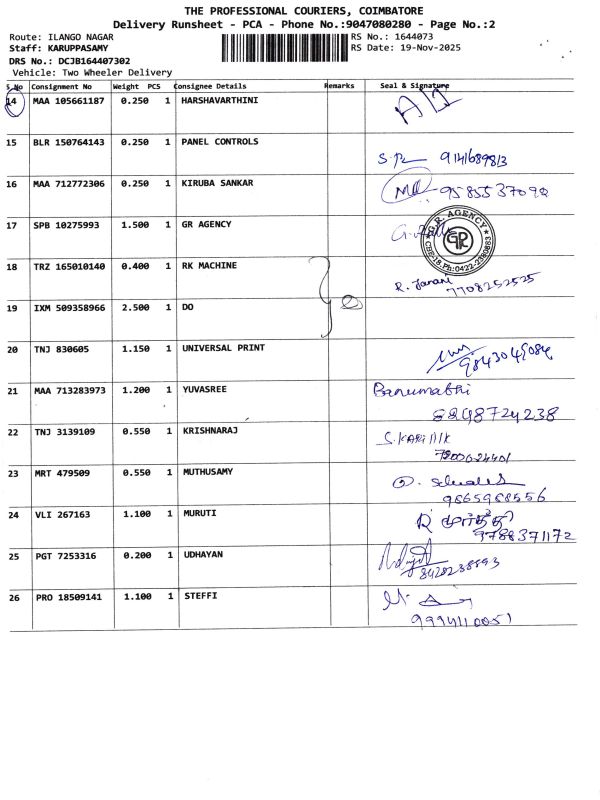 THE PROFESSIONAL COURIERS, COIMBATORE
Delivery Runsheet - PCA - Phone No.:9047080280 - Page No.:2
Route: ILANGO NAGAR RS No.: 1644073
Staff: KARUPPASAMY RS Date: 19-Nov-2025
DRS No.: DCJB164407302
Vehicle: Two Wheeler Delivery
S.No Consignment No Weight PCS Consignee Details Remarks Seal & Signature
14 MAA 105661187 0.250 1 HARSHAVARTHINI
15 BLR 150764143 0.250 1 PANEL CONTROLS
16 MAA 712772306 0.250 1 KIRUBA SANKAR
17 SPB 10275993 1.500 1 GR AGENCY
G.R. AGENCY
GR
18 TRZ 165010140 0.400 1 RK MACHINE
7708252525
19 IXM 509358966 2.500 1 DO
20 TNJ 830605 1.150 1 UNIVERSAL PRINT
9843049084
21 MAA 713283973 1.200 1 YUVASREE Banumathi
8248724238
22 TNJ 3139109 0.550 1 KRISHNARAJ
23 MRT 479509 0.550 1 MUTHUSAMY
9865988556
24 VLI 267163 1.100 1 MURUTI
9788371172
25 PGT 7253316 0.200 1 UDHAYAN
26 PRO 18509141 1.100 1 STEFFI
9994110051